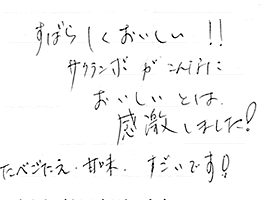 すばらしくおいしい!!
サクランボがこんなに
おいしいとは
感激しました!
たべごたえ・甘味・すごいです!